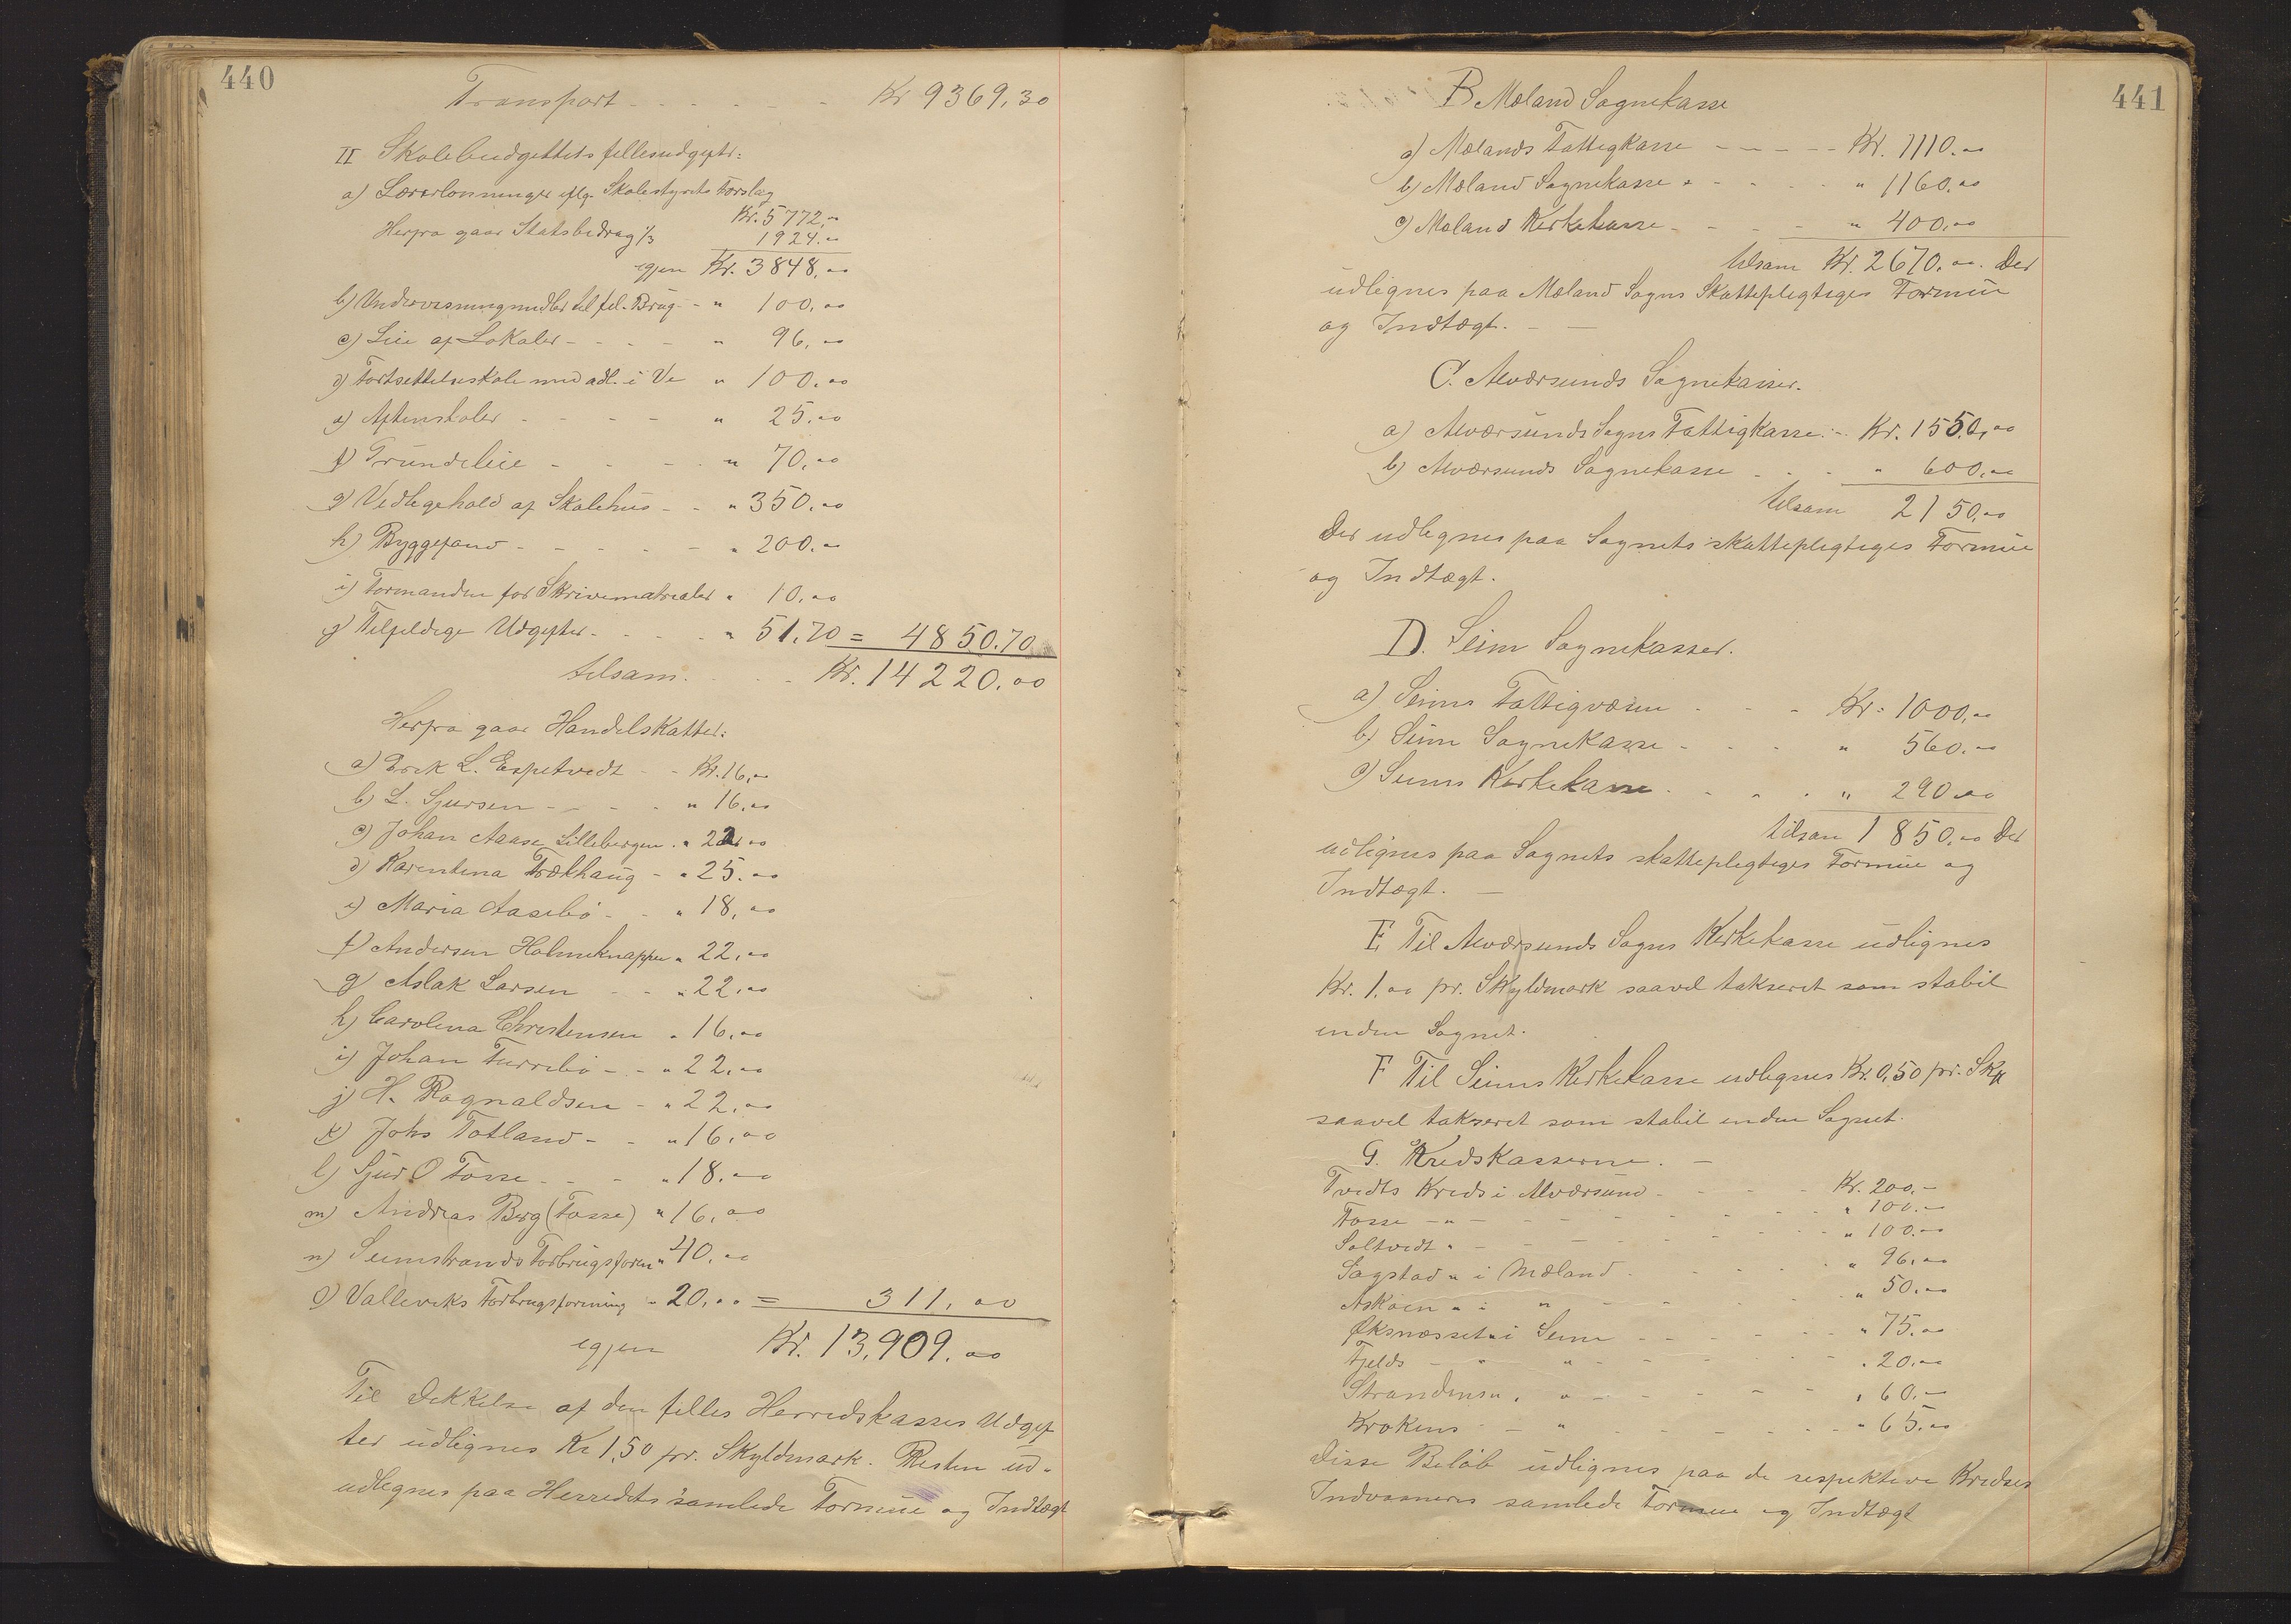 440
Transport - - - - - - Kr 9369,30
II Skolebudgettets fellesudgifter:
a) Lærerlønninger iflg. Skolestyrets Forslag
Kr. 5772,00
Herfra gaar Statsbidrag 1/3 1924.00
igjen Kr. 3848,00
b) Undervisningsmidler til fel. Brug - " 100,00
c) Leie af Lokaler - - - - " 96,00
d) Fortsettelseskole med adl. i Ve " 100,00
e) Aftenskoler - - - - " 25,00
f) Grundleie - - - - " 70,00
g) Vedligehold af Skolehus - - " 350,00
h) Byggefand - - - - - " 200.00
i) Formanden for Skrivematrialer " 10,00
j) Tilfeldige Udgifter - - - - " 51,70 = 4850.70
tilsam. - - - Kr. 14220,00
Herfra gaar Handelskatter:
a) Erik L. Espetvedt - - Kr. 16,00
b) L. Sjursen - - - - " 16,00
c) Johan Aaase Lillebergen " 22,00
d) Karentina Trækhaug - " 25,00
e) Maria Aasebø - - " 18,00
f) Andersen Holmeknappen " 22,00
g) Aslak Larsen - - " 22,00
h) Carolina Christensen " 16,00
i) Johan Turrebø - - " 22,00
j) H. Ragnaldsen - " 22,00
k) Johs Totland - - " 16,00
l) Sjur O Fosse - - - " 18,00
m) Andreas Berg (Fosse) " 16,00
n) Seimstrands Forbrugsforen " 40,00
o) Valleviks Forbrugsforening " 20,00 = 311,00
igjen Kr. 13,909,00
Til Dekkelse af den felles Herredskasses Udgif
ter udlignes Kr 1,50 pr. Skyldmark. Resten ud-
udlignes paa Herredets samlede Formue og Indtægt
441
B Mæland Sognekasse
a) Mælands Fattigkasse - - - - - Kr. 1110,00
b) Mæland Sognekasse - - - - " 1160,00
c) Mæland Kirkekasse - - - - " 400,00
tilsam Kr. 2670,00. Der
udlignes paa Mæland Sogns Skattepligtiges Formue
og Indtægt. - -
C. Alværsunds Sognekasser.
a) Alværsunds Sogns Fattigkasse - Kr. 1550,00
b) Alværsunds Sognekasse - - - " 600,00
tilsam 2150,00
Der udlignes paa Sognets skattepligtiges Formue
og Indtægt.
D. Seim Sognekasser.
a) Seims Fattigvæsen - - - Kr. 1000,00
b) Seim Sognekasse - - - " 560,00
c) Seims Kirkekasse - - - - " 290,00
tilsam 1850,00 Der
udlignes paa Sognets skattepligtiges Formue og
Indtægt. -
E. Til Alværsunds Sogns Kirkekasse udlignes
Kr. 1,00 pr. Skyldmark saavel takseret som stabil
inden Sognet.
F Til Seims Kirkekasse udlignes Kr. 0,50 pr. Skm
saavel takseret som stabil inden Sognet.
G. Kredskasserne. -
Tvedts Kreds i Alværsund - - - Kr. 200,-
Fosse - " - - - - - - - " 100,-
Soltvedt " - - - - - - " 100,00
Sagstad " i Mæland - - - - " 96,00
Askøen " i " - - - - " 50,00
Øksnæsset " i Seim - - - - - " 75,00
Fjelds - " " - - - - - " 20,00
Strandens " " - - - - " 60,-
Krokens - " - - - - - " 65,00
Disse Beløb udlignes paa de respektive Kredses
Indvaaneres samlede Formue og Indtægt